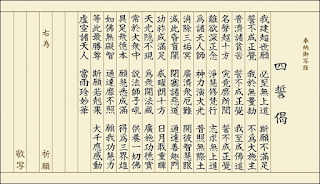 奉納御写経
四誓偈
我建超世願 必至無上道 斯願不滿足
誓不成正覺 我於無量劫 不爲大施主
普濟諸貧苦 誓不成正覺 我至成佛道
名聲超十方 究竟靡所聞 誓不成正覺
離欲深正念 淨慧修梵行 志求無上道
爲諸天人師 神力演大光 普照無際土
消除三垢冥 廣濟衆厄難 開彼智慧眼
滅此昏盲闇 閉塞諸惡道 通達善趣門
功祚成滿足 威曜朗十方 日月戢重暉
天光隱不現 爲衆開法藏 廣施功德寶
常於大衆中 說法師子吼 供養一切佛
具足衆德本 願慧悉成滿 得爲三界雄
如佛無礙智 通達靡不照 願我功慧力
等此最勝尊 斯願若剋果 大千應感動
虛空諸天人 當雨珍妙華
右為 祈願
敬写